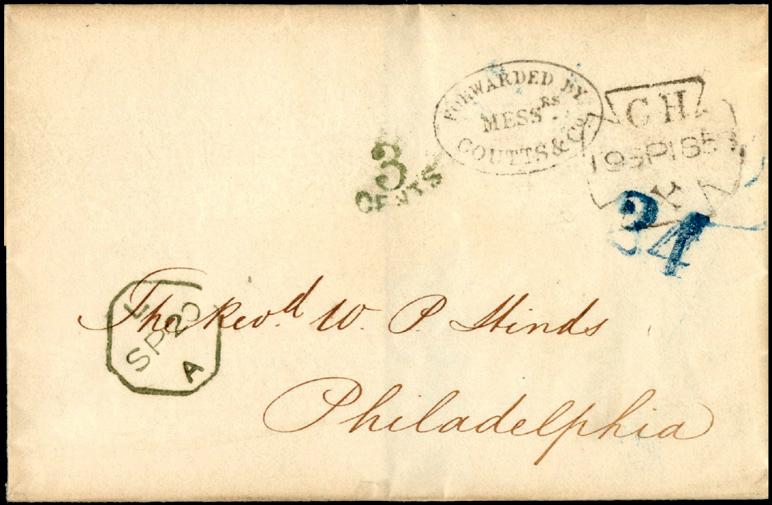 FORWARDED BY
MESSRS
COUTTS & Co.
CH
19SP185
X
3
CENTS
24
L
SP20
A
The Revd W. P. Hinds
Philadelphia